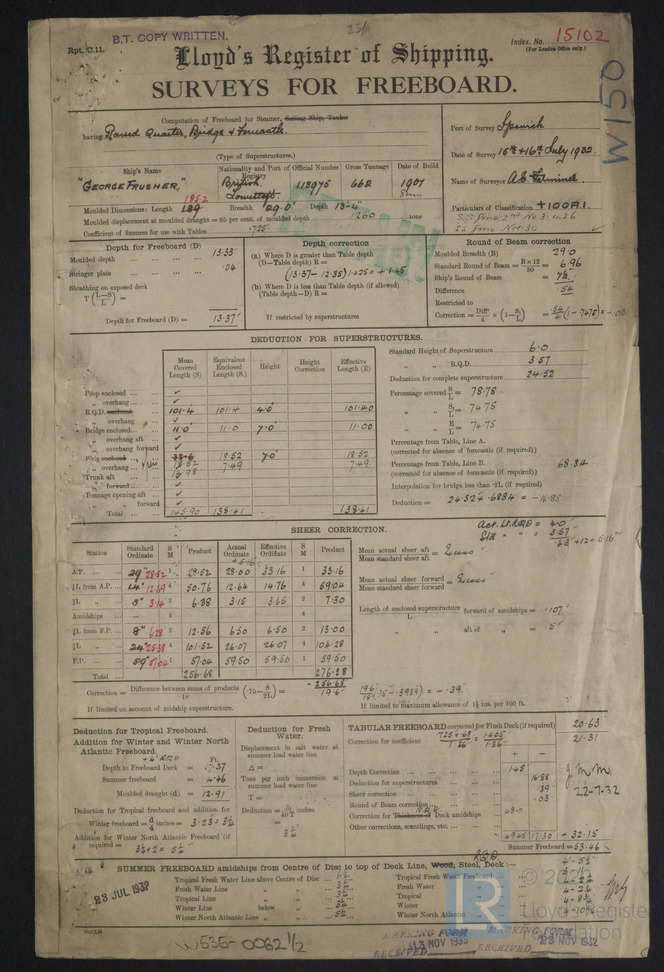 B.T. COPY WRITTEN.
Rpt. C.11.
Index. No. 15102
(For London Office only.)
Lloyd's Register of Shipping.
SURVEYS FOR FREEBOARD.
W150
Computation of Freeboard for Steamer, Sailing Ship, Tanker
having Raised Quarter, Bridge & Forecastle.
(Type of Superstructures.)
Port of Survey Ipswich
Date of Survey 15th & 16th July 1932.
Name of Surveyor
Particulars of Classification +100A1.
Ship's Name
Nationality and Port of Registry
Official Number
Gross Tonnage
Date of Build
"GEORGE FRUSHER,"
British Lowestoft.
113975
662
1907
Moulded Dimensions: Length 189 Breadth 29.0' Depth 13-4"
Moulded displacement at moulded draught = 85 per cent. of moulded depth 1260 tons
Coefficient of fineness for use with Tables .725
Depth for Freeboard (D)
Moulded depth 13.33
Stringer plate .04
Sheathing on exposed deck
T (L-S/L) =
Depth for Freeboard (D) = 13.37
Depth correction
(a) Where D is greater than Table depth
(D—Table depth) R =
(13.37 - 12.35) 1.425 = + 1.45
(b) Where D is less than Table depth (if allowed)
(Table depth—D) R =
If restricted by superstructures
Round of Beam correction
Moulded Breadth (B) 29.0
Standard Round of Beam = B×12/50 = 6.96
Ship's Round of Beam = 7½
Difference .54
Restricted to
Correction = Diff./4 × (1-S/L) = .54/4 (1-.7475) = -.03
DEDUCTION FOR SUPERSTRUCTURES.
Mean Covered Length (S)
Equivalent Enclosed Length (S₁)
Height
Height Correction
Effective Length (E)
Poop enclosed
„ overhang
R.Q.D. enclosed 101.4 101.4 4.0' 101.40
„ overhang
Bridge enclosed 11.0' 11.0 7.0' 11.00
„ overhang aft
„ overhang forward
F'cle enclosed 33-6 18.52 7.0' 18.52
„ overhang 18.52 14.98 7.49 7.49
Trunk aft
„ forward
Tonnage opening aft
„ „ forward
Total 145.90 138.41 138.41
Standard Height of Superstructure 6.0
„ „ R.Q.D. 3.57
Deduction for complete superstructure 24.52
Percentage covered S/L = 78.78
„ „ S₁/L = 74.75
„ „ E/L = 74.75
Percentage from Table, Line A.
(corrected for absence of forecastle (if required))
Percentage from Table, Line B. 68.84
(corrected for absence of forecastle (if required))
Interpolation for bridge less than ·2L (if required)
Deduction = 24.52 × .6884 = -16.88
SHEER CORRECTION.
Station
Standard Ordinate
S M
Product
Actual Ordinate
Effective Ordinate
S M
Product
A.P. 29" 28.52 1 28.52 28.00 33.16 1 33.16
⅙L from A.P. 14" 12.69 4 50.76 12.64 14.76 4 59.04
⅓L „ 3" 3.14 2 6.28 3.15 3.65 2 7.30
Amidships
⅓L from F.P. 8" 6.28 2 12.56 6.50 6.50 2 13.00
⅙L „ 24" 25.38 4 101.52 26.07 26.07 4 104.28
F.P. 59" 57.04 1 57.04 59.50 59.50 1 59.50
Total 256.68 276.28
- 256.68
19.6
Mean actual sheer aft / Mean standard sheer aft = Less
Mean actual sheer forward / Mean standard sheer forward = Less
Length of enclosed superstructure / L forward of amidships = .107
„ „ aft of „ = .5
Correction = Difference between sums of products / 18 (·75-S/2L) = 19.6/18 (.75-.3939) = -.39
If limited on account of midship superstructure.
If limited to maximum allowance of 1½ ins. per 100 ft.
Deduction for Tropical Freeboard.
Addition for Winter and Winter North
Atlantic Freeboard.
Ft.
Depth to Freeboard Deck = 17.37
Summer freeboard = 4.46
Moulded draught (d) = 12.91
Deduction for Tropical freeboard and addition for
Winter freeboard = d/4 inches = 3.23 = 3¼
Addition for Winter North Atlantic Freeboard (if
required = 3¼ + 2 = 5¼
Deduction for Fresh Water.
Displacement in salt water at
summer load water line
Δ =
Tons per inch immersion at
summer load water line
T =
Deduction = Δ/40 T inches
=
3¼
TABULAR FREEBOARD corrected for Flush Deck (if required) 20.63
Correction for coefficient .725+.68/1.36 = 1.405/1.36 21.31
+ -
Depth Correction 1.45
Deduction for superstructures 16.88
Sheer correction .39
Round of Beam correction .03
Correction for Thickness of Deck amidships 48.0
Other corrections, scantlings, etc.
49.45 17.30 + 32.15
Summer Freeboard = 53.46
22-7-32
SUMMER FREEBOARD amidships from Centre of Disc to top of Deck Line, Wood, Steel, Deck :— 4'-5½
Tropical Fresh Water Line above Centre of Disc
Fresh Water Line „ „
Tropical Line „ „
Winter Line below „
Winter North Atlantic Line „ „
Tropical Fresh Water Freeboard
Fresh Water „
Tropical „
Winter „
Winter North Atlantic „
23 JUL 1932
W535-0062½
MARKING FORM
RECEIVED 13 NOV 1935
MARKING FORM
RECEIVED 23 NOV 1932
LR
Lloyd's Register
Foundation